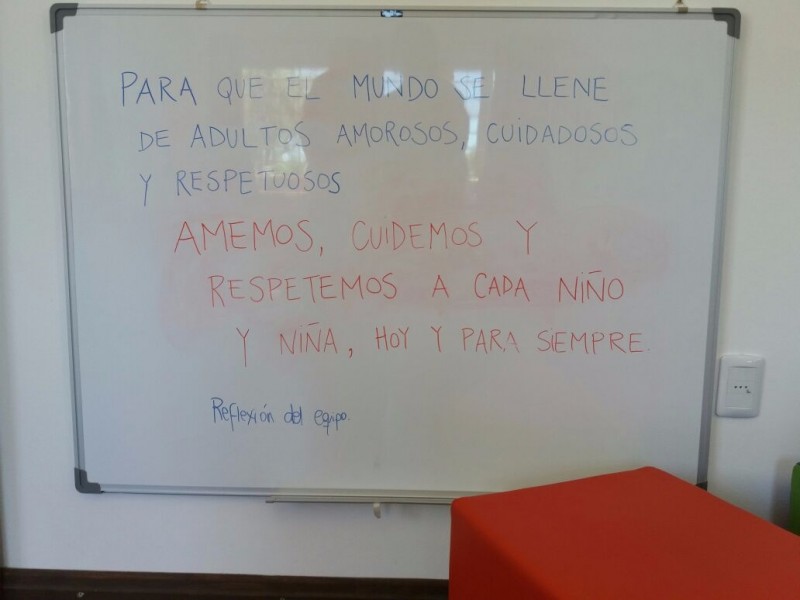 PARA QUE EL MUNDO SE LLENE
DE ADULTOS AMOROSOS, CUIDADOSOS
Y RESPETUOSOS
AMEMOS, CUIDEMOS Y
RESPETEMOS A CADA NIÑO
Y NIÑA, HOY Y PARA SIEMPRE.
Reflexión del equipo.